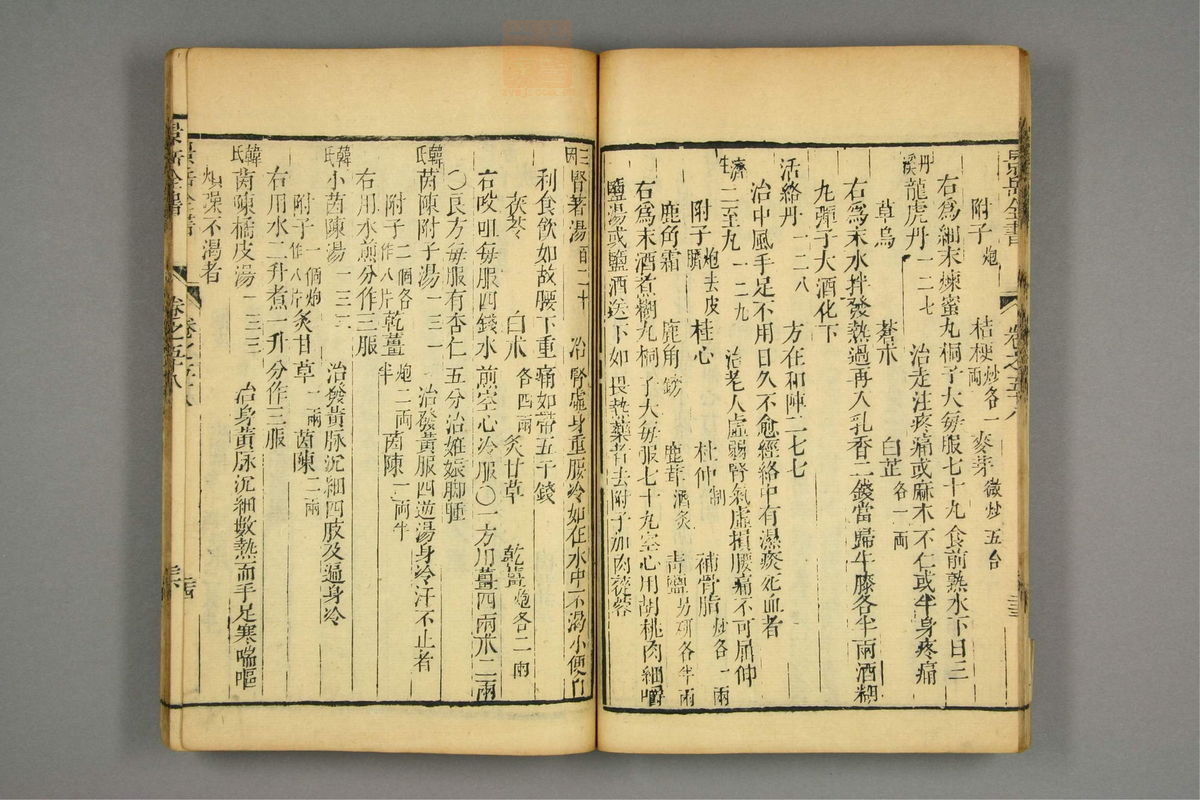 景岳全書 卷之五十八
附子炮 桔梗炒各一兩 麥芽微炒五合
右為細末煉蜜丸桐子大每服七十丸食前熱水下日三
丹溪龍虎丹一二七 治走注疼痛或麻木不仁或半身疼痛
草烏 蒼朮 白芷各一兩
右爲末水拌發熱過再入乳香二錢當歸牛膝各半兩酒糊
丸彈子大酒化下
活絡丹一二八 方在和陣二七七
治中風手足不用日久不愈經絡中有濕痰死血者
濟生二至丸一二九 治老人虛弱腎氣虛損腰痛不可屈伸
附子炮去皮臍 桂心 杜仲制 補骨脂炒各一兩
鹿角霜 鹿角鎊 鹿茸酒炙 青鹽另研各半兩
右爲末酒煮糊丸桐子大每服七十丸空心用胡桃肉細嚼
鹽湯或鹽酒送下如畏熱藥者去附子加肉蓯蓉
三因腎著湯百二十 治腎虛身重腰冷如在水中不渴小便
利食飲如故腰下重痛如帶五千錢
茯苓 白朮各四兩 炙甘草 乾薑炮各二兩
右㕮咀每服四錢水煎空心冷服〇一方用薑四兩朮二兩
〇良方每服有杏仁五分治姙娠脚腫
韓氏茵陳附子湯一三一 治發黃服四逆湯身冷汗不止者
附子二個各作八片 乾薑炮二兩半 茵陳一兩半
右用水煎分作三服
韓氏小茵陳湯一三二 治發黃脉沉細四肢及遍身冷
附子一個炮作八片 炙甘草一兩 茵陳二兩
右用水二升煮一升分作三服
韓氏茵陳橘皮湯一三三 治身黃脉沉細數熱而手足寒喘嘔
煩躁不渴者
卷之五十八